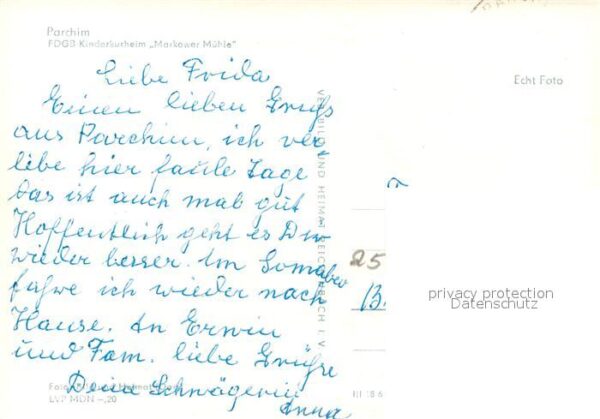 Parchim
FDGB Kinderkurheim „Markower Mühle"
Echt Foto
Liebe Frida
Einen lieben Gruß
aus Parchim, ich ver
lebe hier faule Tage
das ist auch mal gut
Hoffentlich geht es Dir
wieder besser. Im
fahre ich wieder nach
Hause. An Erwin
und Fam. liebe Grüße
Deine Schwägerin
Anna
VERLAG BILD UND HEIMAT REICHENBACH I. V.
25
13.
privacy protection
Datenschutz
Foto:
LVP MDN –,20
III 18 6